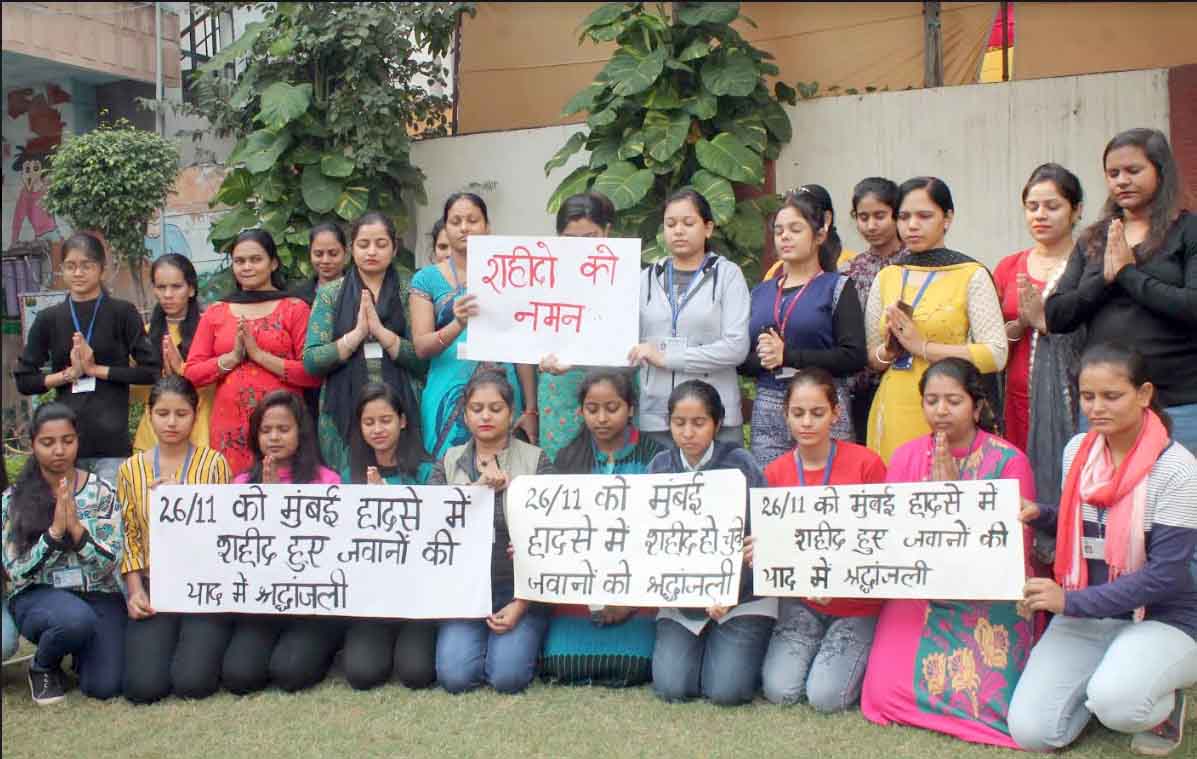 शहीदो को
नमन
26/11 को मुंबई हादसे में
शहीद हुए जवानों की
याद में श्रद्धांजली
26/11 को मुंबई
हादसे में शहीद हो चुके
जवानों को श्रद्धांजली
26/11 को मुंबई हादसे में
शहीद हुए जवानों की
याद में श्रद्धांजली